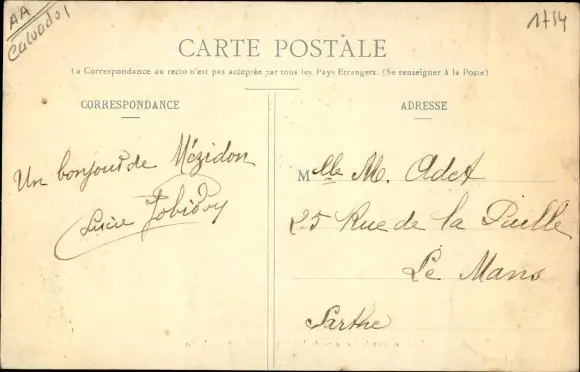 AA
Calvados
1754
CARTE POSTALE
La Correspondance au recto n'est pas acceptée par tous les Pays Etrangers. (Se renseigner à la Poste)
CORRESPONDANCE
Un bonjour de Mézidon
Lucie
ADRESSE
Mlle M. Adet
25 Rue de la Paille
Le Mans
Sarthe